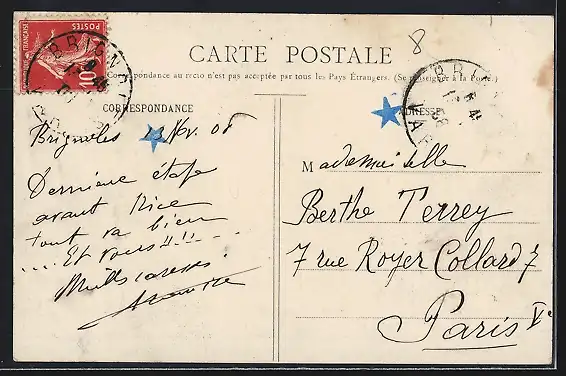 8
CARTE POSTALE
La Correspondance au recto n'est pas acceptée par tous les Pays Étrangers. (Se renseigner à la Poste.)
CORRESPONDANCE
ADRESSE
POSTES
10
BRIGNOLES
VAR
Brignoles Nov. 08
Dernière étape
avant Nice
tout va bien
... Et vous !!!! ...
Mille caresses.
Mademoiselle
Berthe Terrey
7 rue Royer Collard 7
Paris Ve